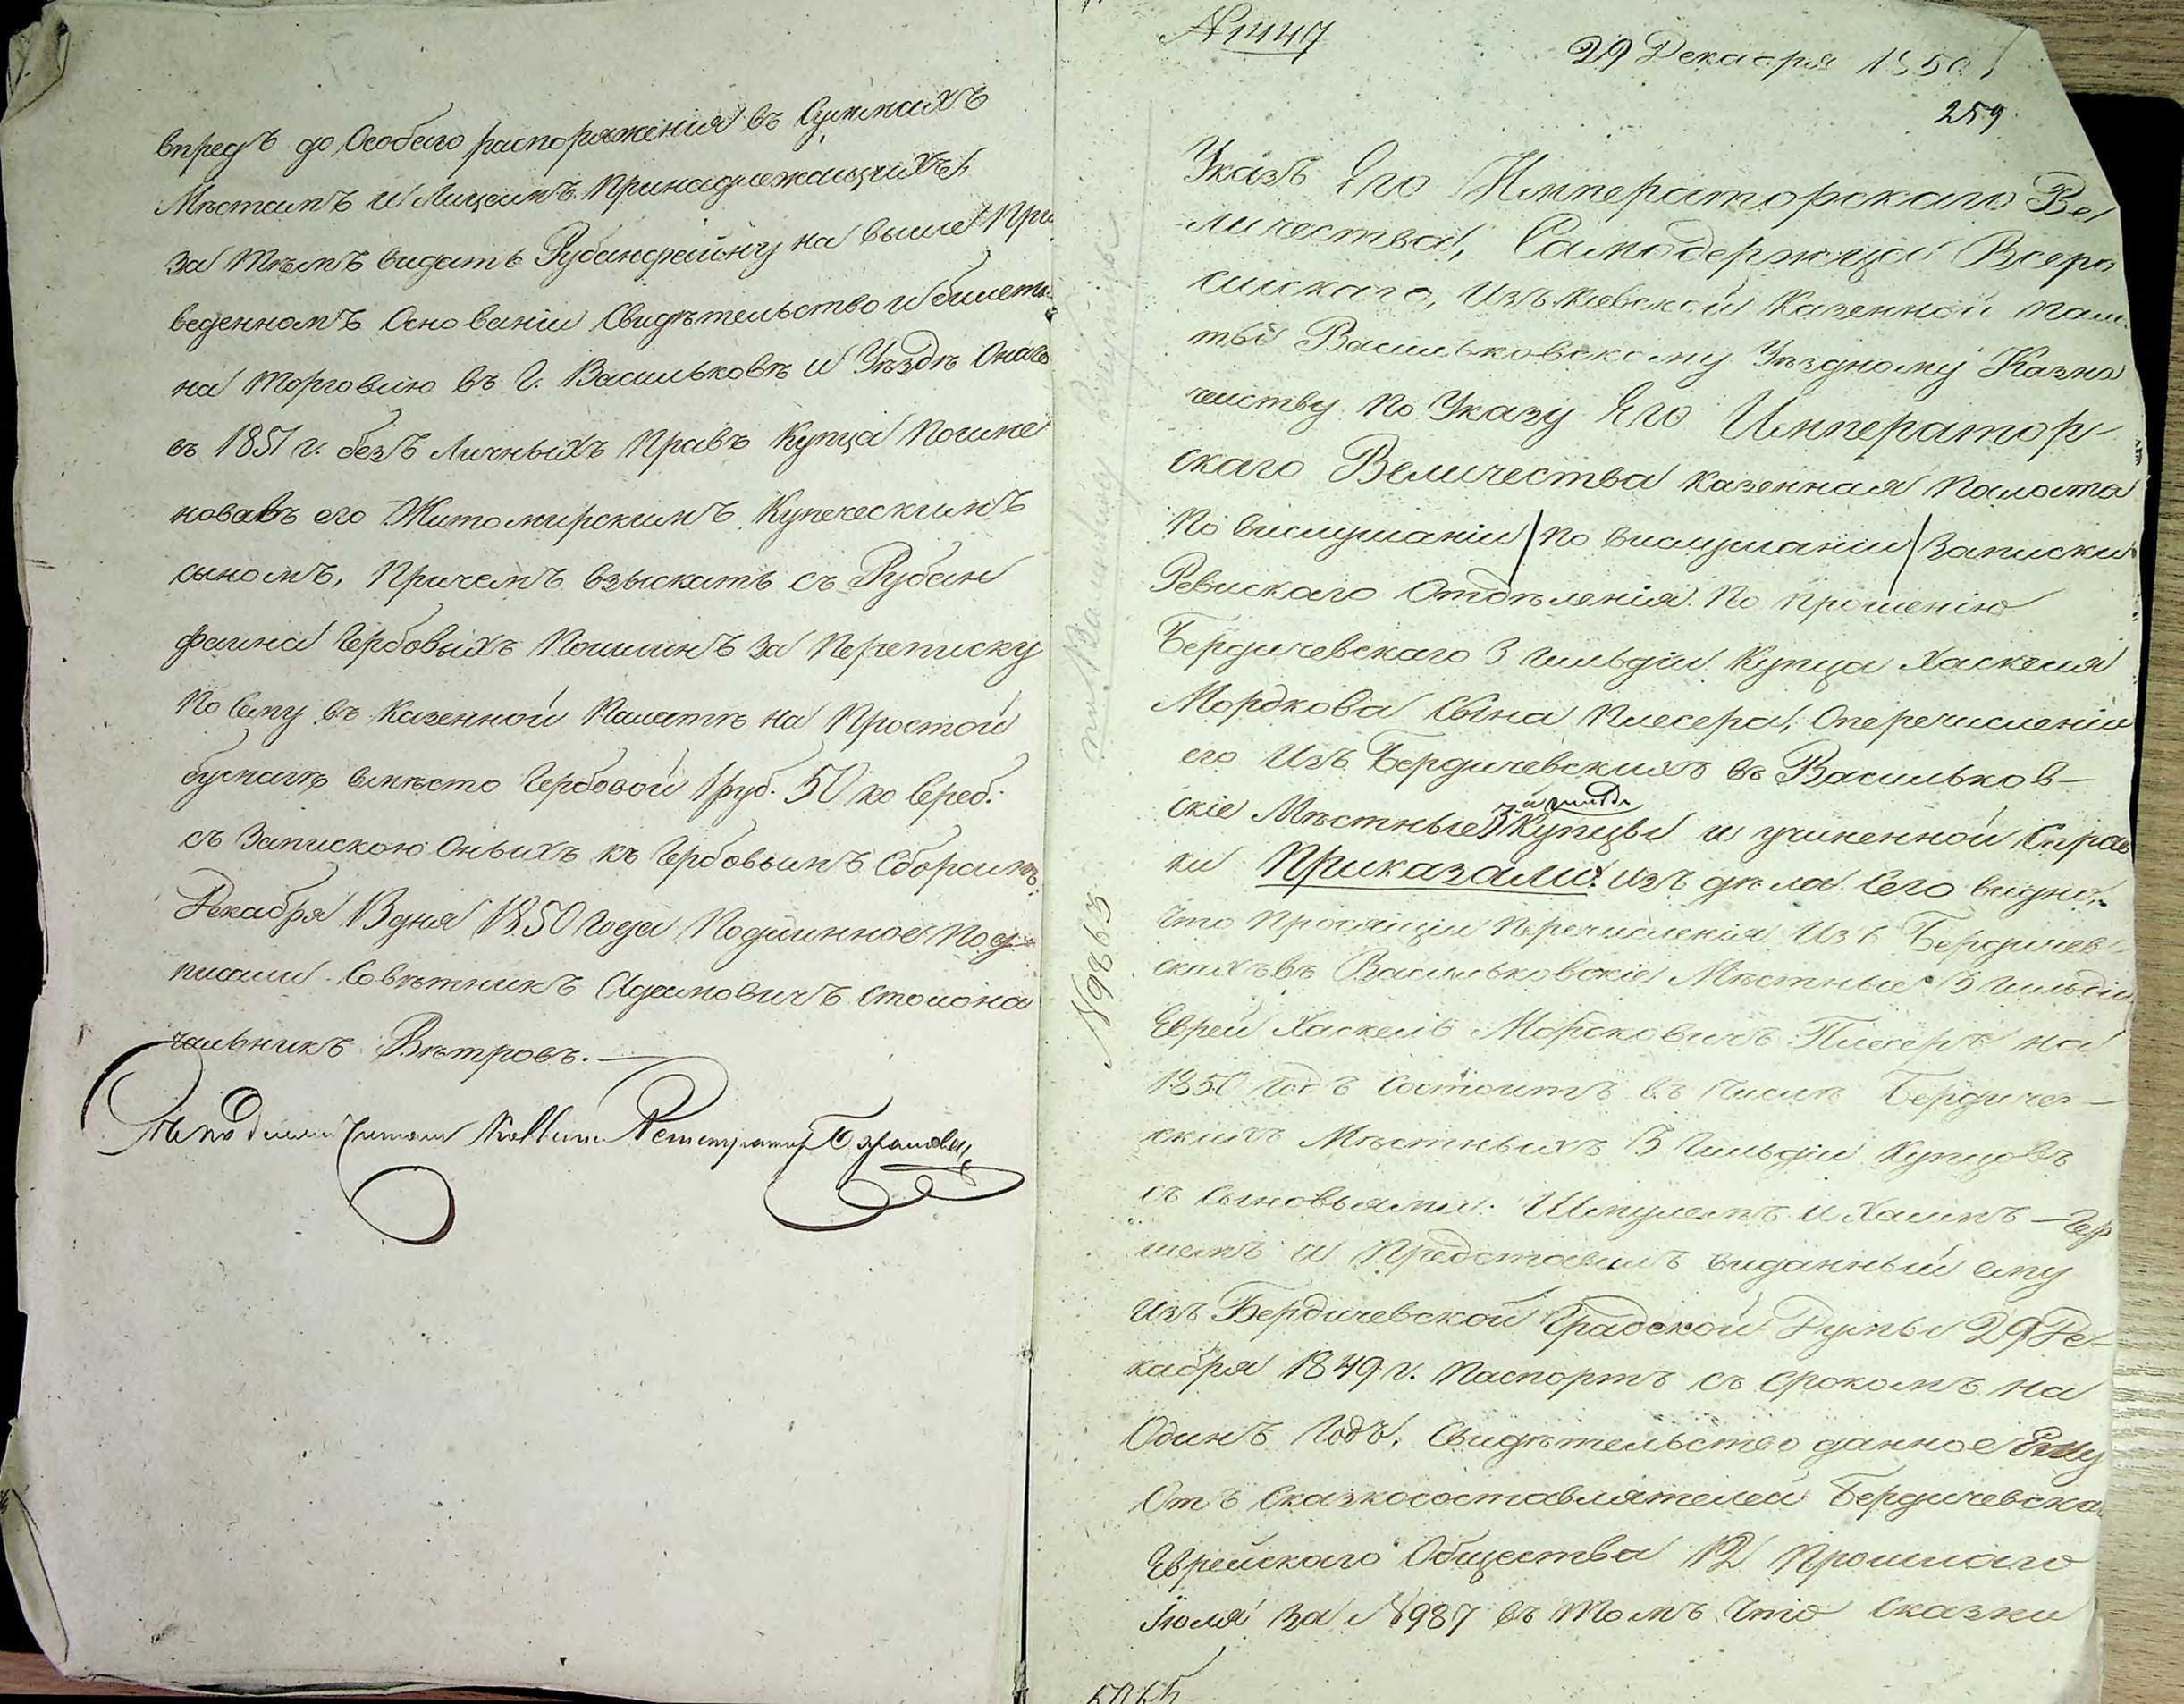 впредь до Особаго распоряженія въ Суммахъ
Мѣстамъ и Лицамъ Принадлежащихъ,
За тѣмъ видать Рубинфейну на выше При
веденномъ Основаніи Свидѣтельство и билетъ
на торговлю въ г. Васильковѣ и Уѣздѣ Онаго
въ 1851 г. безъ Личныхъ Правъ Купца Поиме
новавъ его Житомирскимъ Купеческимъ
сыномъ, Причемъ взыскать съ Рубин
фаина Гербовыхъ Пошлинъ за Переписку
По Сему въ Казенной Палатѣ на Простой
бумагѣ вмѣсто Гербовой 1 руб. 50 ко Сереб.
съ Запискою Оныхъ къ Гербовымъ Сборамъ.
Декабря 13 дня 1850 года Подлинное Под-
писали Совѣтникъ Адамовичъ Столона
чальникъ Вѣтровъ.
№ 1447
29 Декабря 1850
259
Указъ Его Императорскаго Ве
личества, Самодержца Всеро
сийскаго, Изъ Киевской Казенной Пала
ты Васильковскому Уѣздному Казна
чейству По Указу Его Император-
скаго Величества Казенная Палата
По вислушаніи / По вислушаніи / Записки
Ревискаго Отдѣленія По Прошенію
Бердичевскаго 3 гильдіи Купца Хаскеля
Мордкова Сына Плесера, Оперечисленіи
его Изъ Бердичевскихъ въ Васильков-
скіе Мѣстные 3 й гильд Купцы и учиненной Справ
ки Приказали: Изъ дѣла Сего видно,
Что Просящій Перечисленія Изъ Бердичев-
скихъ въ Васильковскіе Мѣстные 3 гильдіи
Еврей Хаскель Мордковичъ Плесеръ на
1850 годъ Состоитъ въ Числѣ Бердичев-
скихъ Мѣстныхъ 3 Гильдіи Купцовъ
съ Сыновьями: Шмулемъ и Хаимъ-Гер
шемъ и Представилъ виданный ему
Изъ Бердичевской Градской Думы 29 Де-
кабря 1849 г. Паспортъ съ срокомъ на
Одинъ Годъ, Свидѣтельство данное Ему
Отъ Сказкосоставлятелей Бердичевска
Еврейскаго Общества 12 Прошлаго
Іюля За № 987 въ томъ Что Сказки